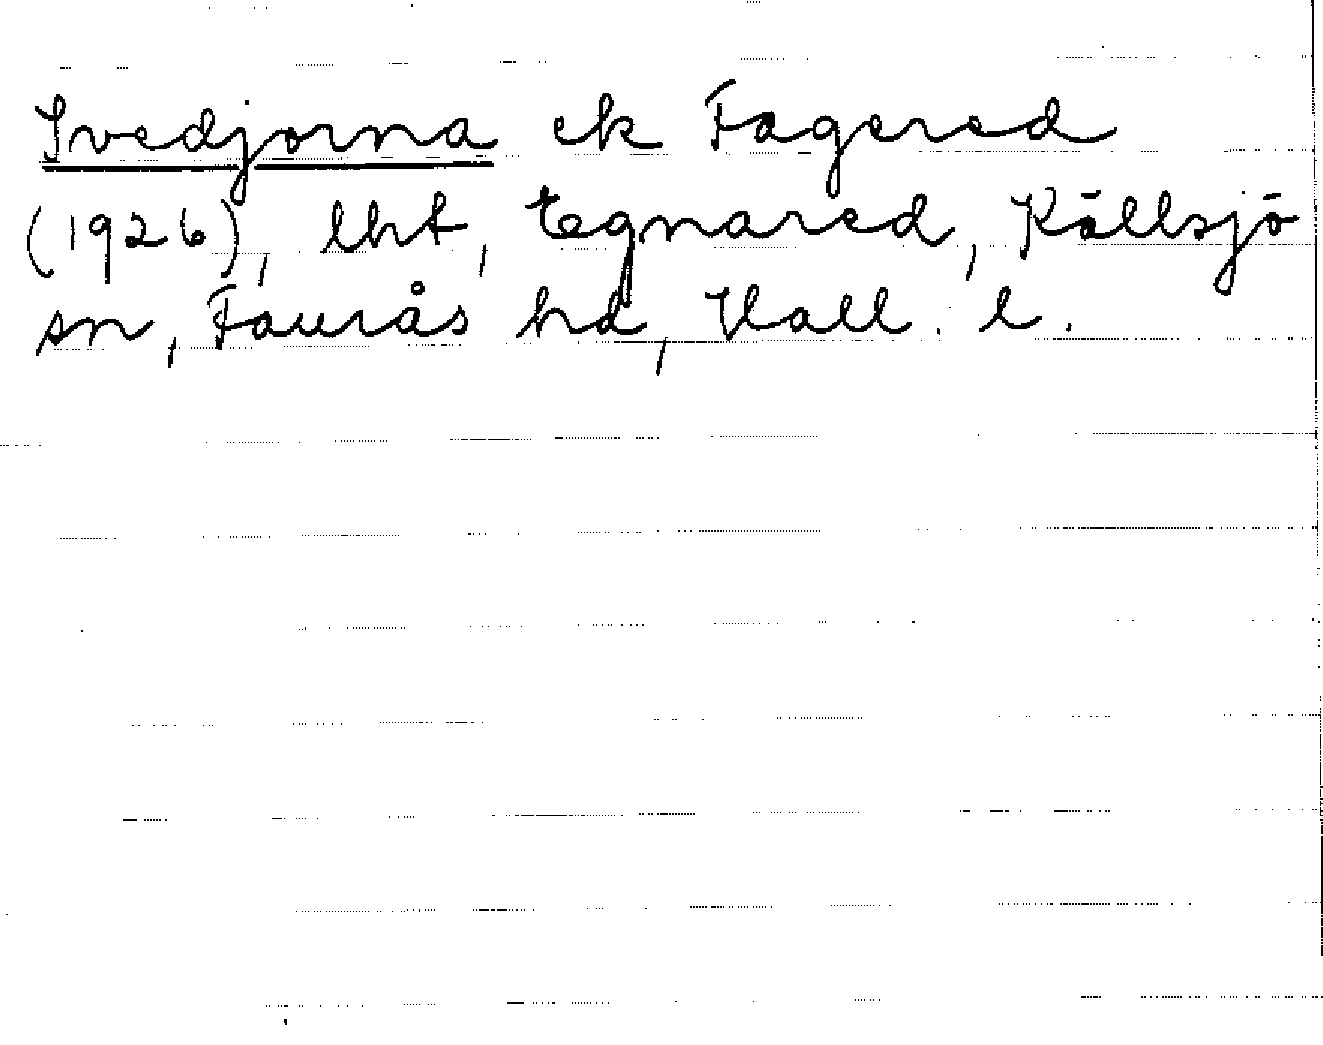 Svedjorna ek Fagered
(1926), lht, Egnared, Källsjö
sn, Faurås hd, Hall. l.